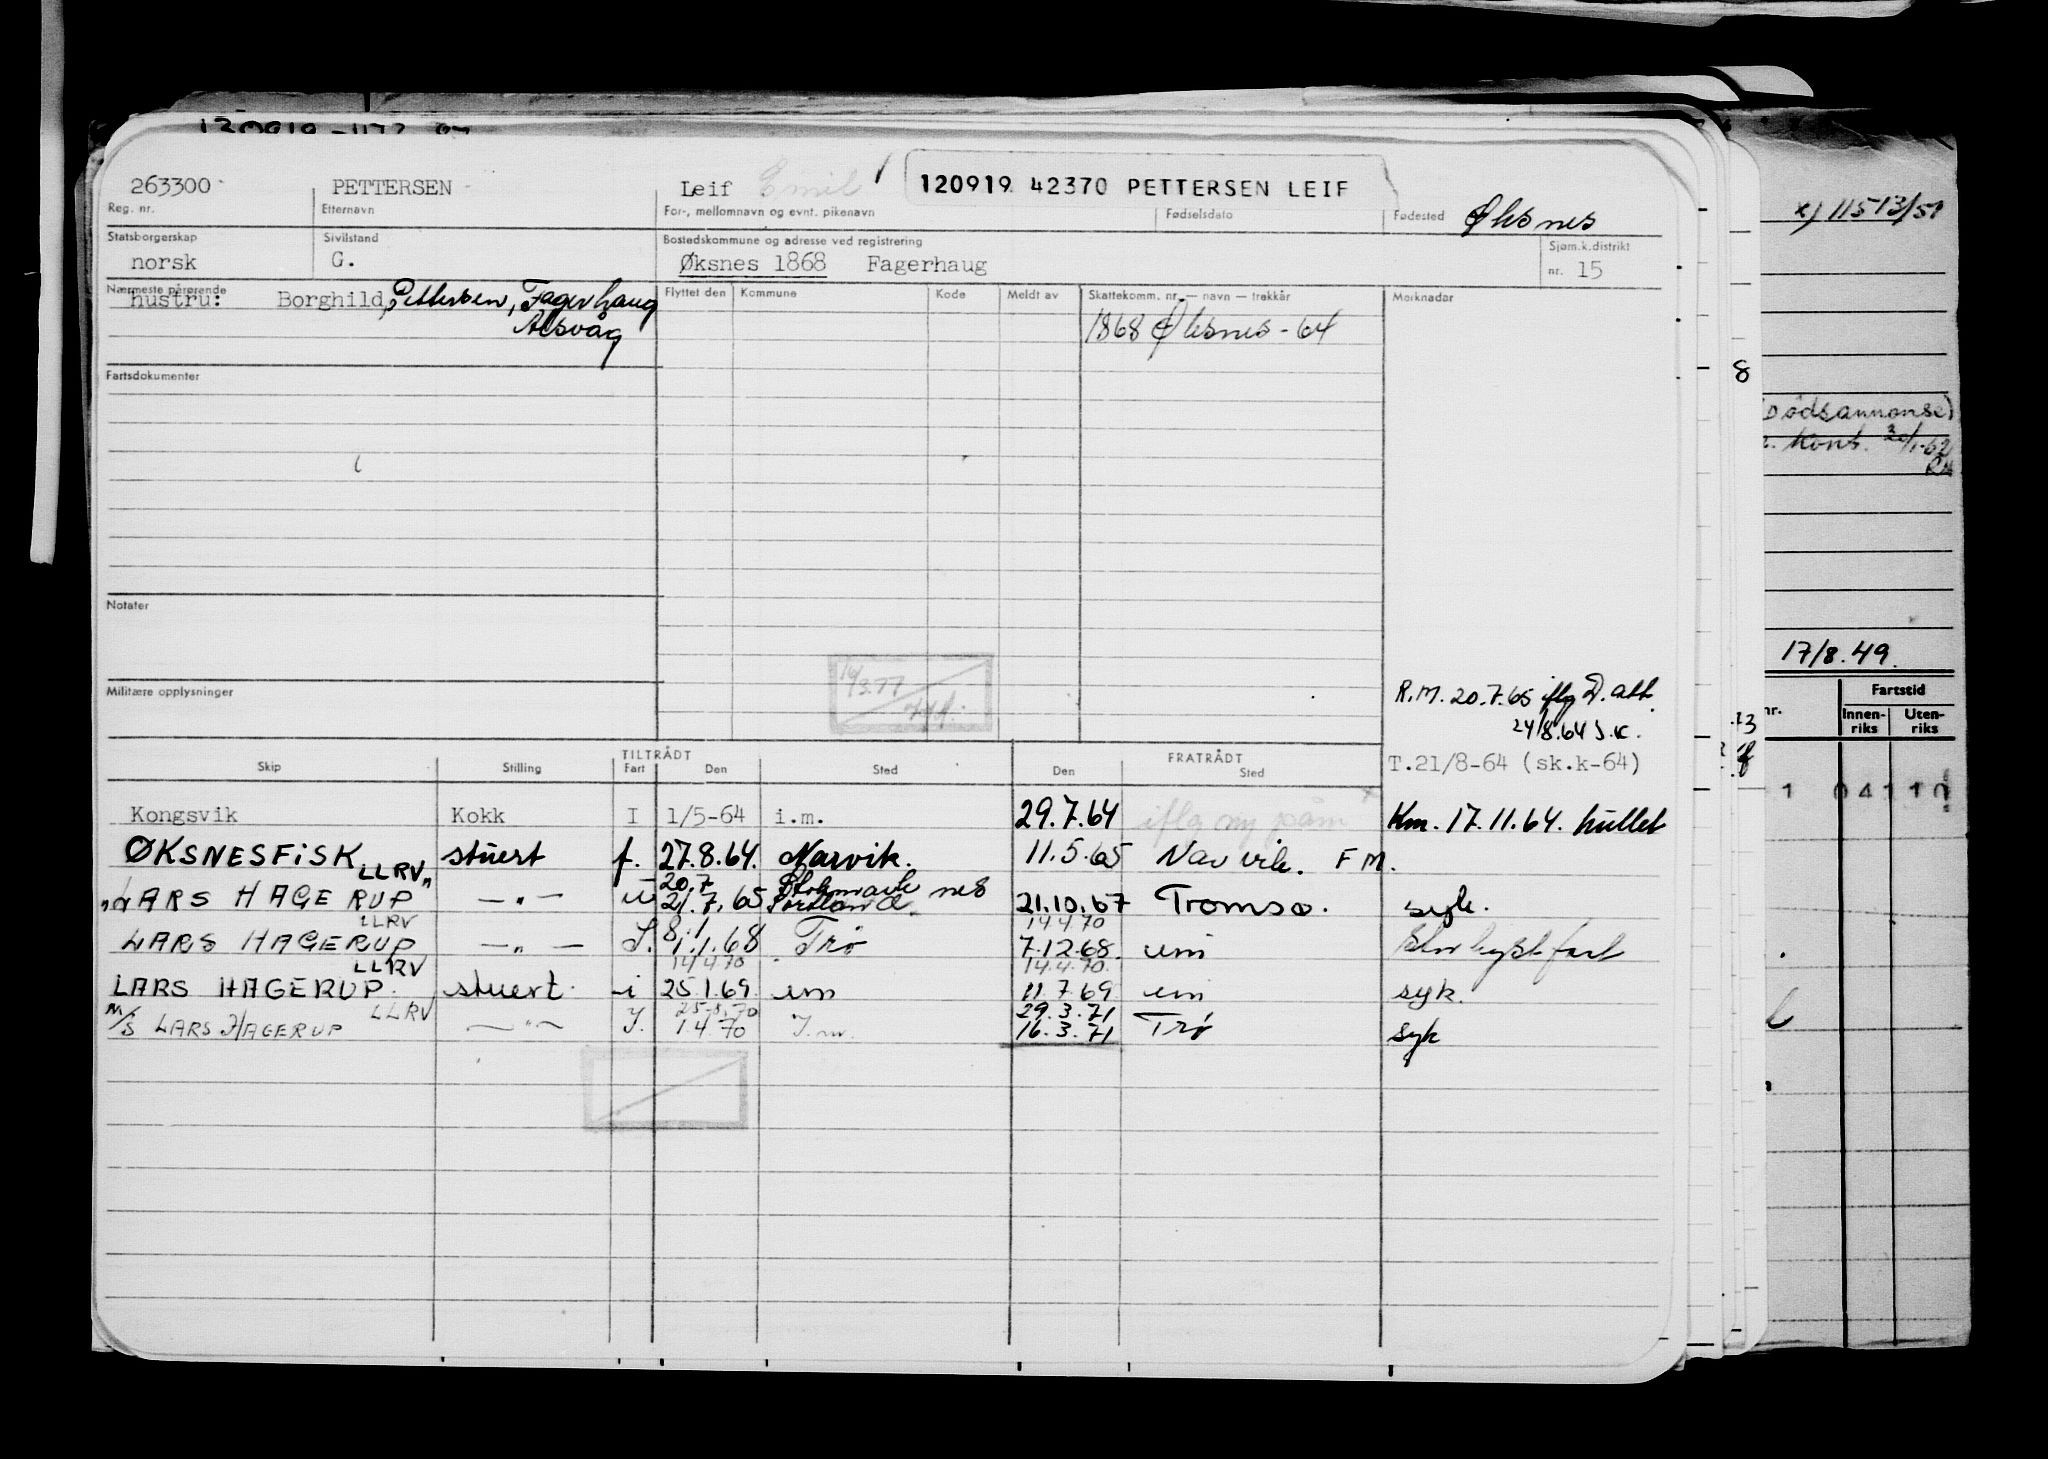 120919
263300 PETTERSEN Leif Emil 120919 42370 PETTERSEN LEIF Øksnes
Reg. nr. Etternavn For-, mellomnavn og evnt. pikenavn Fødselsdato Fødested
Statsborgerskap Sivilstand Bostedskommune og adresse ved registrering Sjøm.k.distrikt
norsk G. Øksnes 1868 Fagerhaug nr. 15
Nærmeste pårørende Flyttet den Kommune Kode Meldt av Skattekomm. nr. — navn — trekkår Merknader
hustru: Borghild Pettersen, Fagerhaug
Alsvåg
1868 Øksnes - 64
Fartsdokumenter
Notater
Militære opplysninger
R.M. 20.7.65 iflg D. att.
24/8.64 S.K.
T.21/8-64 (sk.k-64)
TILTRÅDT FRATRÅDT
Skip Stilling Fart Den Sted Den Sted
Kongsvik Kokk I 1/5-64 i.m. 29.7.64 iflg ny påm Km. 17.11.64. hullet
ØKSNESFISK stuert f. 27.8.64. Narvik. 11.5.65 Narvik. FM.
LLRV 20.7 Stokmarknes
"LARS HAGERUP" —"— 21.7.65 Portland 21.10.67 Tromsø. syk.
LLRV 8.1 14 4 70
LARS HAGERUP —"— 1.1.68 Trø 7.12.68 um
LLRV 14 4 70 14.4.70.
LARS HAGERUP. stuert. i 25.1.69. um 11.7.69 um syk.
LLRV 29.3.71
M/S LARS HAGERUP —"— I. 1.4.70 I.m. 16.3.71 Trø syk
x) 11513/51
8
Dødsannonse)
17/8.49.
Fartstid
nr. Innen-riks Uten-riks